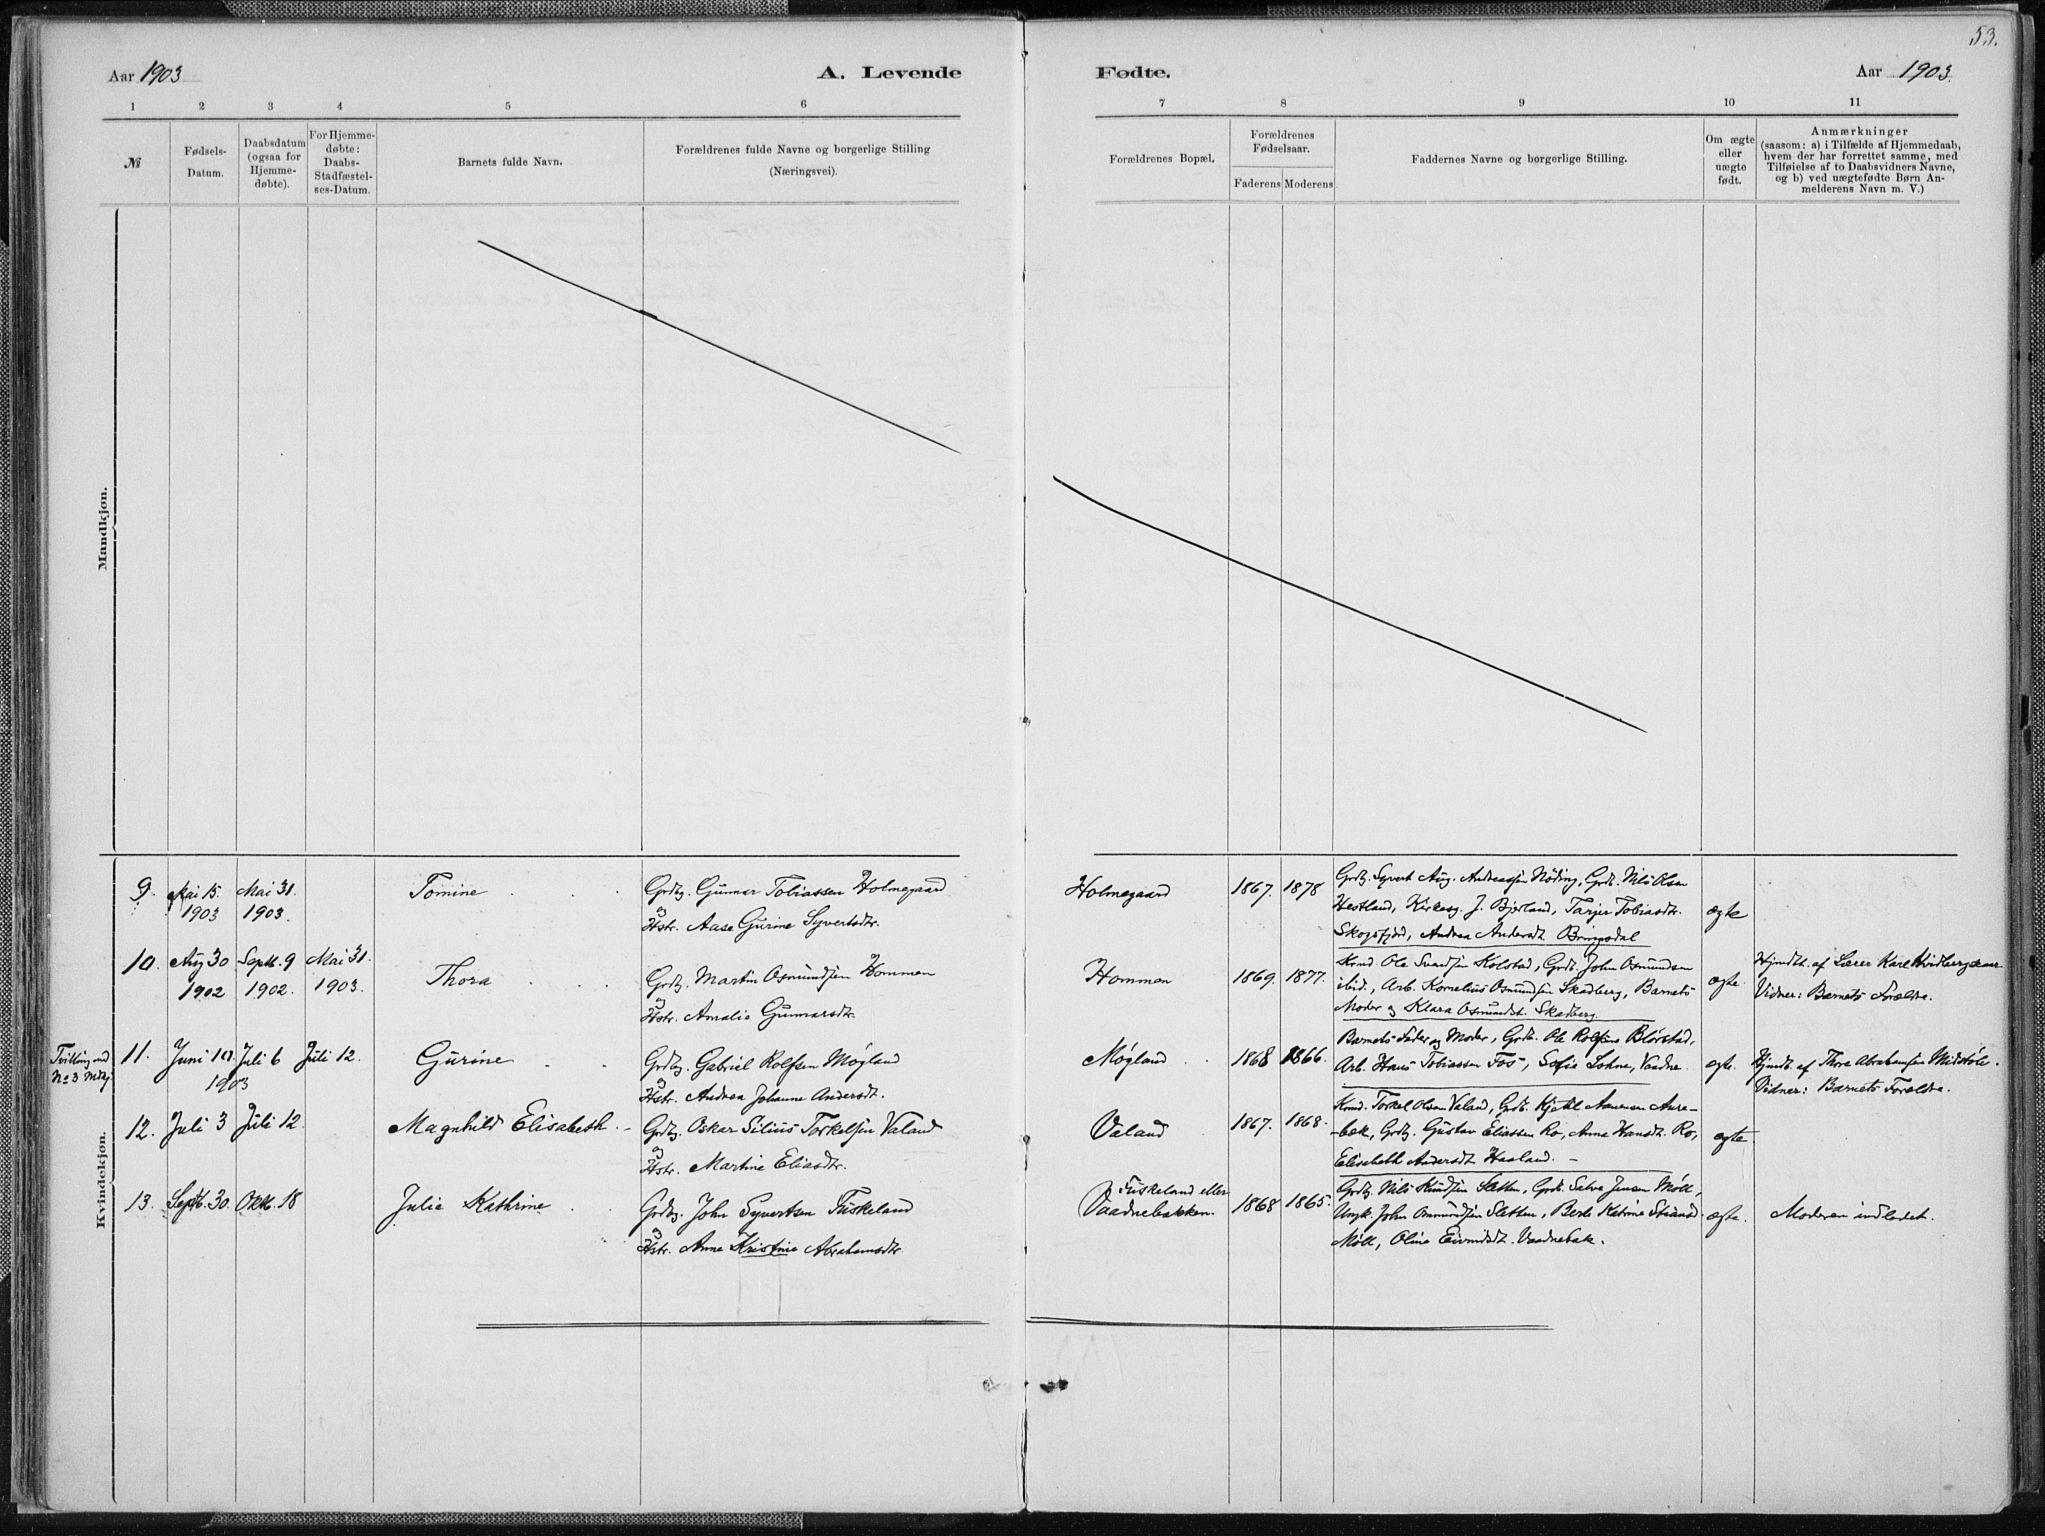 53.
Aar 1903
A. Levende
Fødte.
Aar 1903.
1 2 3 4 5 6
7 8 9 10 11
№
Fødsels-
Datum.
Daabsdatum
(ogsaa for
Hjemme-
døbte).
For Hjemme-
døbte:
Daabs-
Stadfæstel-
ses-Datum.
Barnets fulde Navn.
Forældrenes fulde Navne og borgerlige Stilling
(Næringsvei).
Forældrenes Bopæl.
Forældrenes
Fødselsaar.
Faderens Moderens
Faddernes Navne og borgerlige Stilling.
Om ægte
eller
uægte
født.
Anmærkninger
(saasom: a) i Tilfælde af Hjemmedaab,
hvem der har forrettet samme, med
Tilføielse af to Daabsvidners Navne,
og b) ved uægtefødte Børn An-
melderens Navn m. V.)
Mandkjøn.
Kvindekjøn.
9. Mai 15. Mai 31. Tomine Grdbg. Gunnar Tobiassen Holmegaard
1903 1903. og
Hstr. Aase Gurine Syvertsdtr.
Holmegaard 1867. 1878 Grdbg. Syvert Aug. Andreassen Nøding, Grdb. Nils Olsen
Hestland, Kirkesg. J. Bjerland, Tarjer Tobiasdtr.
Skogsfjord, Andrea Andersdt. Bringsdal
ægte
10. Aug 30 Septb. 9 Mai 31. Thora Grdbg. Martin Osmundsen Hommen
1902 1902. 1903. og
Hstr. Amalie Gunnarsdtr.
Hommen 1869. 1877. Kmd. Ole Svendsen Kolstad, Grdb. John Osmundsen
ibid., Arb. Kornelius Osmundsen Skadberg, Barnets
Moder og Klara Osmundsdt. Skadberg.
ægte. Hjmdt. af Lærer Karl
Vidner: Barnets Forældre.
Tvilling med
No 3 Mdkj.
11. Juni 10. Juli 6 Juli 12. Gurine Grdbg. Gabriel Rolfsen Møgland
1903 og
Hstr. Andrea Johanne Andersdt.
Møgland 1868 1866. Barnets Fader og Moder, Grdb. Ole Rolfsen Blørstad,
Arb. Hans Tobiassen Fos, Sofie Lohne, Vaadne.
ægte. Hjmdt. af Thore Abrahamsen Midbøle.
Vidner: Barnets Forældre.
12. Juli 3 Juli 12. Magnhild Elisabeth Grdbg. Oskar Silius Torkelsen Valand
og
Hstr. Martine Eliasdtr.
Valand 1867. 1868. Kmd. Torkel Olsen Valand, Grdb. Kjetil Aanensen Aure-
bæk, Grdbg. Gustav Eliassen Ro, Anna Hansdt. Ro,
Elisabeth Andersdt Haaland.
ægte
13. Septb. 30. Oktb. 18 Julie Kathrine Grdbg. John Syvertsen Fuskeland
og
Hstr. Anne Kristine Abrahamsdtr
Fuskeland eller
Vaadnebakken. 1868 1865. Grdbg. Nils Knudsen Sletten, Grdb. Salve Jensen Møll,
Ungk. John Osmundsen Sletten, Berte Katrine
Møll, Oline Eivindsdt. Vaadnebak.
ægte. Moderen indledet.